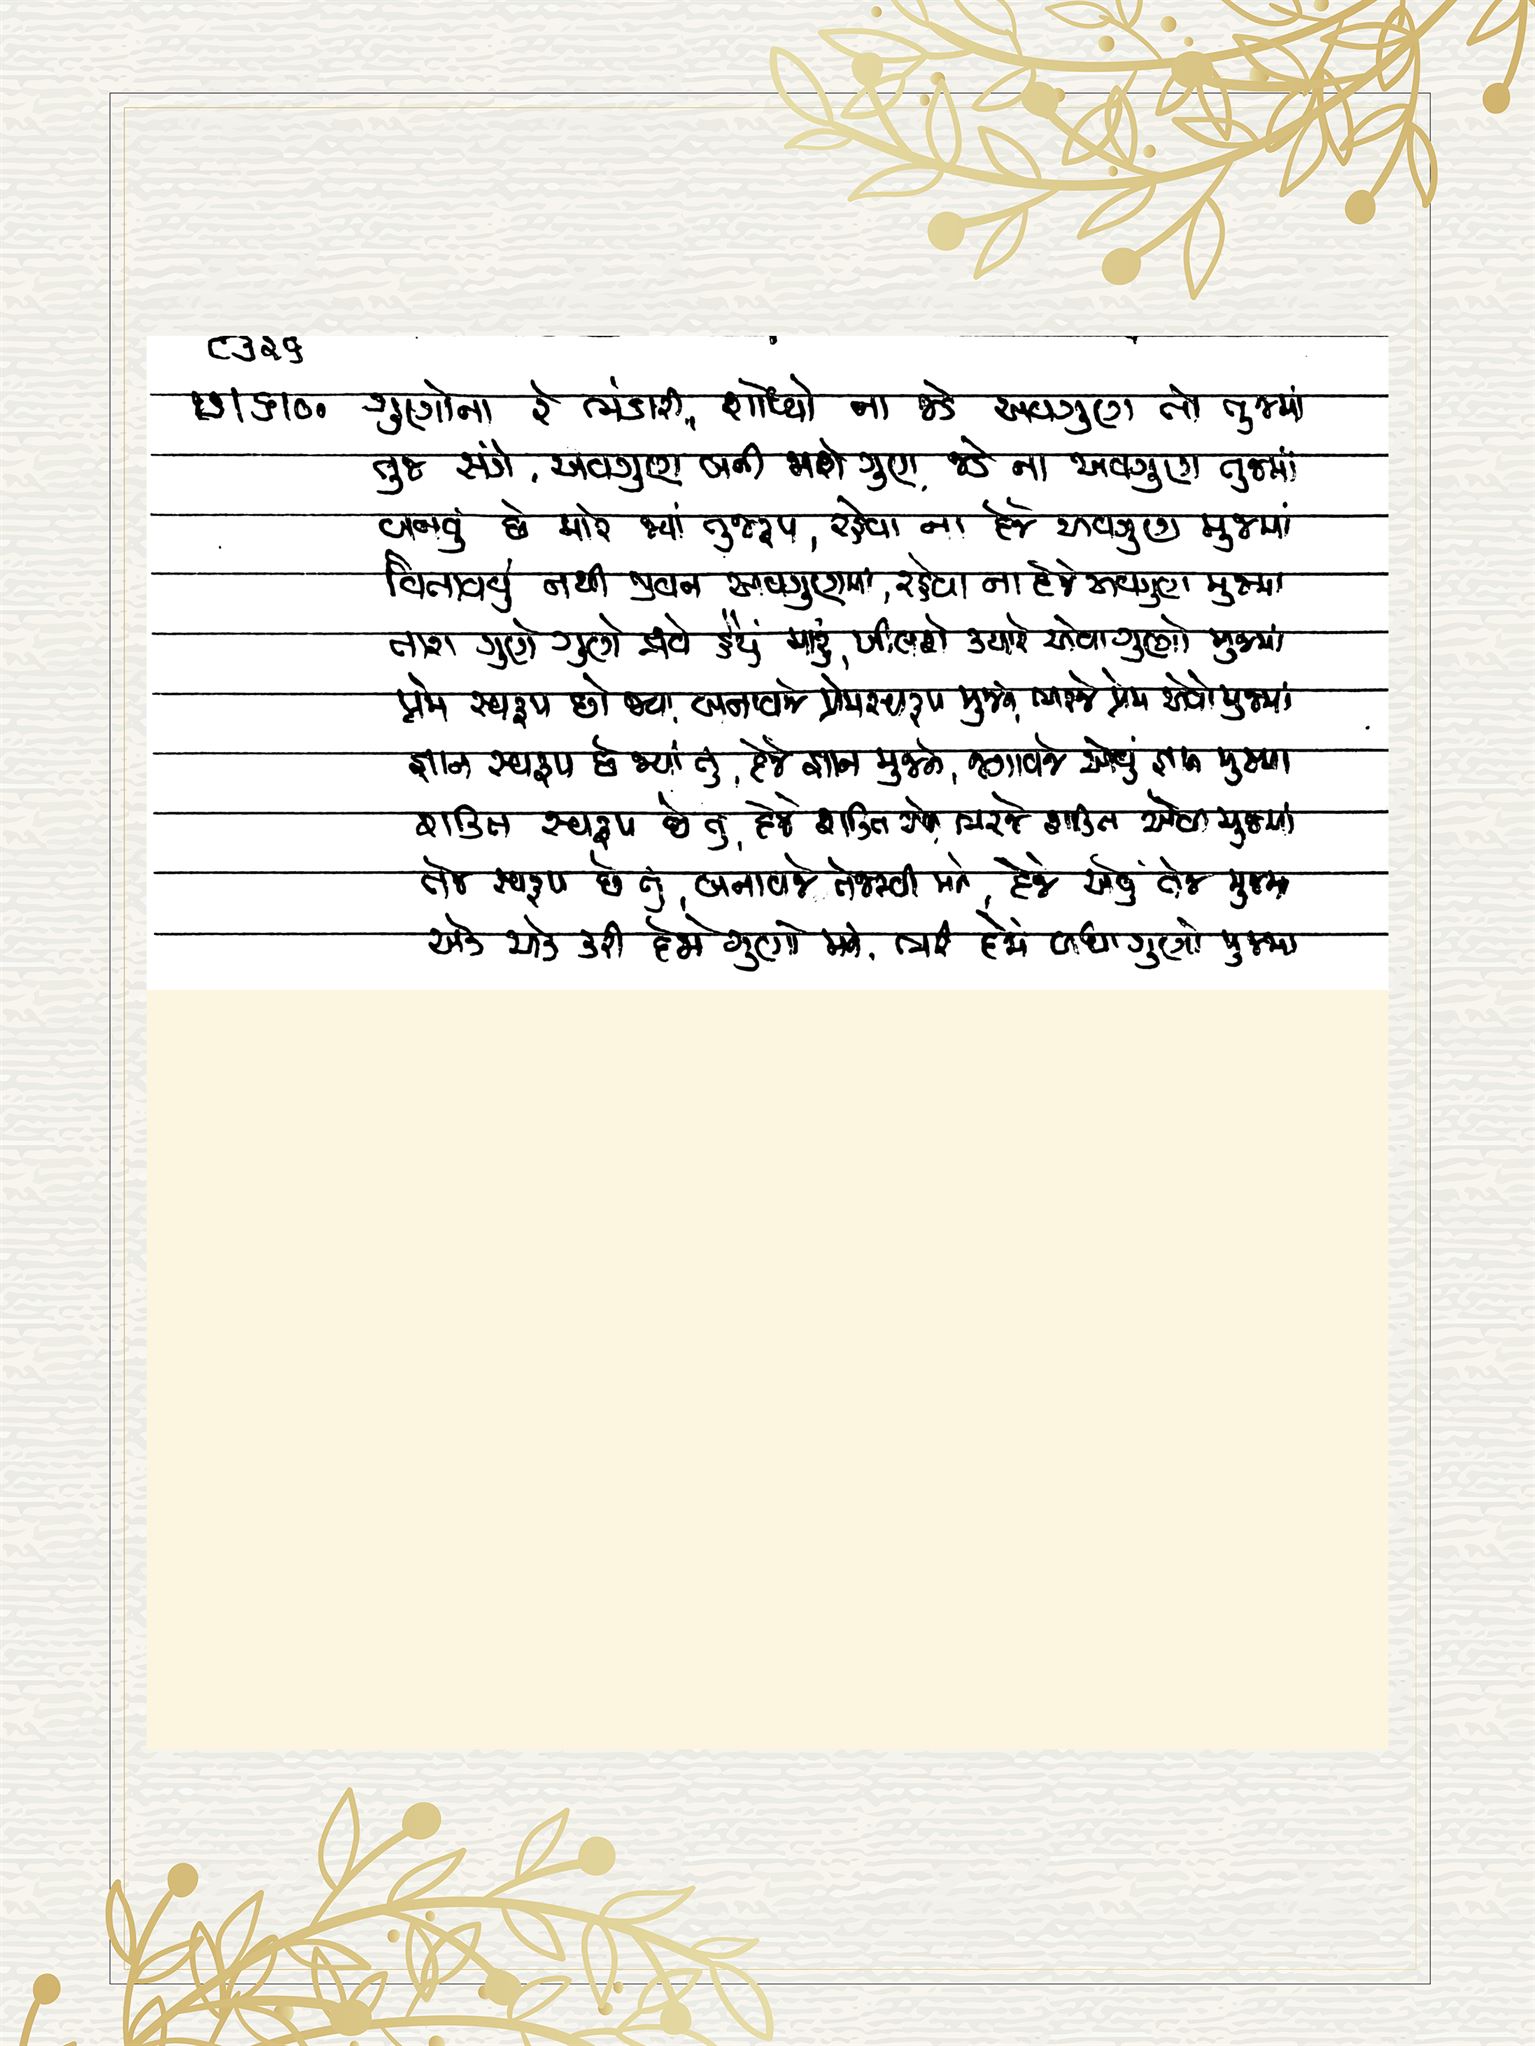 ૮૩૨૬
ગુણોના રે ભંડારી, શોધ્યો ના જડે અવગુણ તો તુજમાં
તુજ સંગે, અવગુણ બની જાશે ગુણ, જડે ના અવગુણ તુજમાં
બનવું છે મારે જ્યાં તુજરૂપ, રહેવા ના દેજે અવગુણ મુજમાં
વિતાવવું નથી જીવન અવગુણમાં, રહેવા ના દેજે અવગુણ મુજમાં
તારા ગુણે ગુણે હૈયું મારું, ખીલશે ક્યારે એવા ગુણો મુજમાં
પ્રેમ સ્વરૂપ છો જ્યાં, બનાવજે પ્રેમસ્વરૂપ મુજને, ભરજે પ્રેમ એવો મુજમાં
જ્ઞાન સ્વરૂપ છે જ્યાં તું, દેજે જ્ઞાન મુજને, જગાવજે એવું જ્ઞાન મુજમાં
શક્તિ સ્વરૂપ છે તું, દેજે શક્તિ ભરજે શક્તિ એવી મુજમાં
તેજ સ્વરૂપ છે તું, બનાવજે તેજસ્વી મને, દેજે એવું તેજ મુજમાં
એક એક કરી દેજે ગુણો મને, ભરી દેજે બધા ગુણો મુજમાં